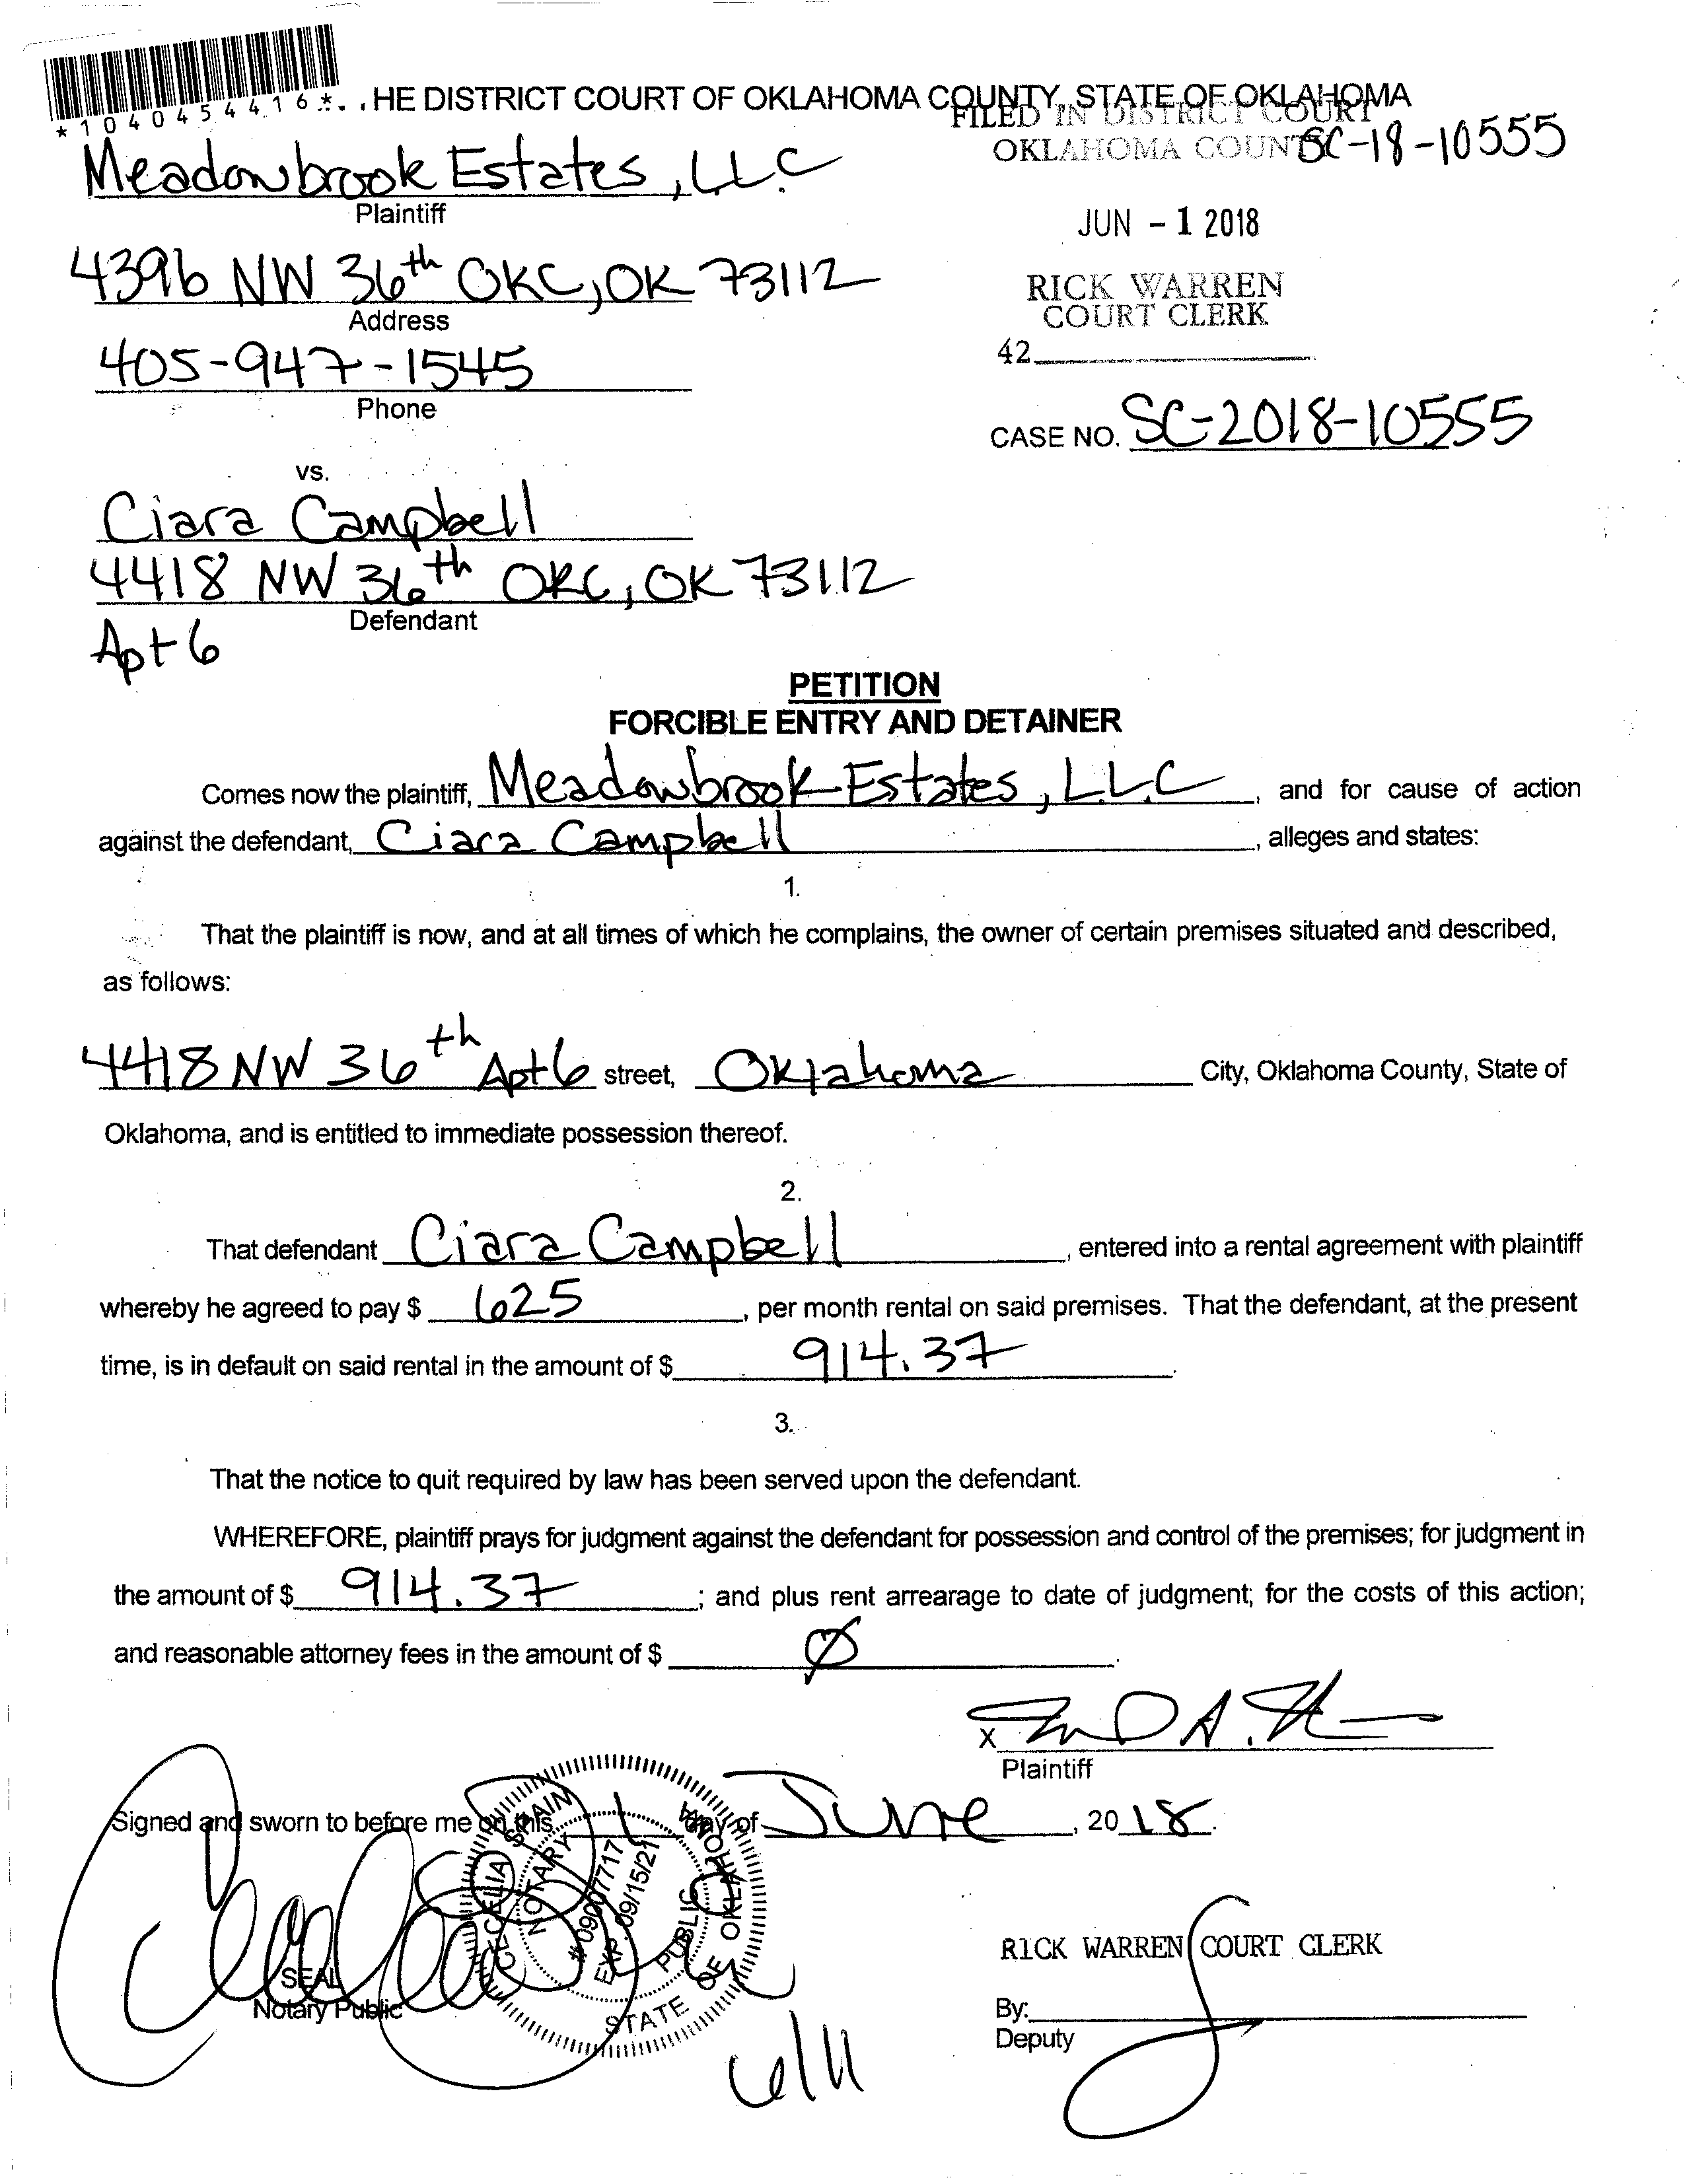 *1040454416*
HE DISTRICT COURT OF OKLAHOMA COUNTY, STATE OF OKLAHOMA
FILED IN DISTRICT COURT
OKLAHOMA COUNTY
SC-18-10555
Meadowbrook Estates, LLC
Plaintiff
JUN - 1 2018
4396 NW 36th OKC, OK 73112
Address
RICK WARREN
COURT CLERK
42
405-947-1545
Phone
CASE NO. SC-2018-10555
vs.
Ciara Campbell
4418 NW 36th OKC, OK 73112
Defendant
Apt 6
PETITION
FORCIBLE ENTRY AND DETAINER
Comes now the plaintiff, Meadowbrook Estates, LLC, and for cause of action
against the defendant, Ciara Campbell, alleges and states:
1.
That the plaintiff is now, and at all times of which he complains, the owner of certain premises situated and described,
as follows:
4418 NW 36th Apt 6 street, Oklahoma City, Oklahoma County, State of
Oklahoma, and is entitled to immediate possession thereof.
2.
That defendant Ciara Campbell, entered into a rental agreement with plaintiff
whereby he agreed to pay $ 625, per month rental on said premises. That the defendant, at the present
time, is in default on said rental in the amount of $ 914.37.
3.
That the notice to quit required by law has been served upon the defendant.
WHEREFORE, plaintiff prays for judgment against the defendant for possession and control of the premises; for judgment in
the amount of $ 914.37; and plus rent arrearage to date of judgment; for the costs of this action;
and reasonable attorney fees in the amount of $ Ø.
X
Plaintiff
Signed and sworn to before me on this 1 day of June, 2018.
CECELIA SPAIN
NOTARY PUBLIC
# 09007717
EXP. 09/15/21
STATE OF OKLAHOMA
SEAL
Notary Public
RICK WARREN COURT CLERK
By:
Deputy
6/11